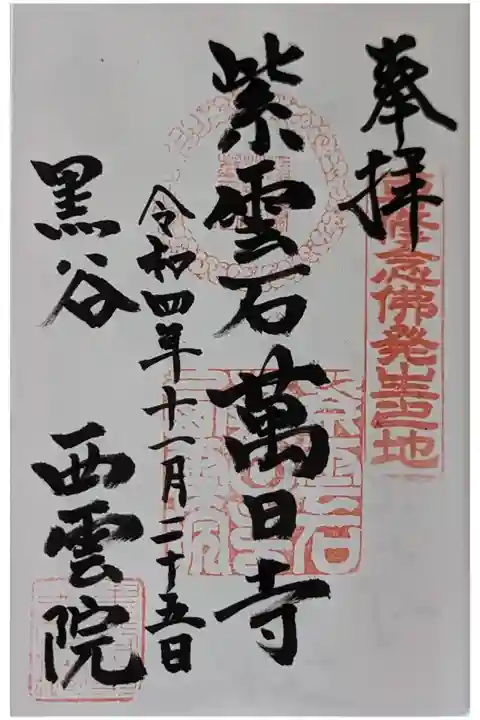 奉拝
専修念佛発生之地
紫雲石萬日寺
令和四年十一月二十五日
黒谷 西雲院